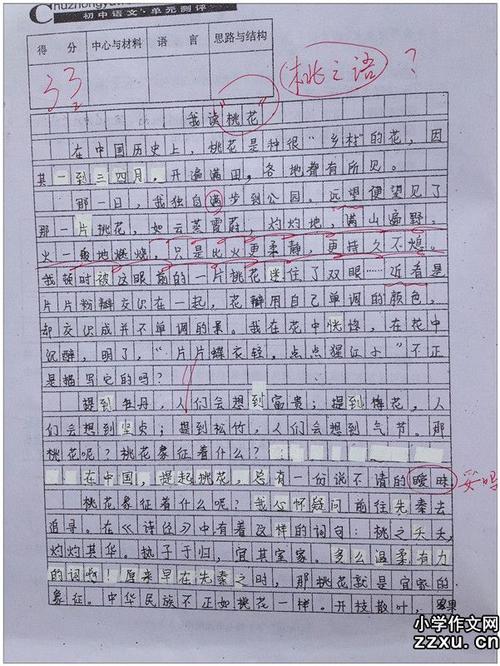 Chuzhongyuwen
初中语文·单元测评
得 分 中心与材料 语 言 思路与结构
33
桃之语 ?
我读“桃花”
在中国历史上，桃花是种很“乡村”的花，因
其一到三四月，开遍满田，各地都有所见。
那一日，我独自漫步到公园。远望便望见了
那一片桃花，如云蒸霞蔚，灼灼地，满山遍野，
火一般地燃烧，只是比火更柔静，更持久不熄。
我顿时被这眼前的一片桃花迷住了双眼……近看是
片片粉瓣交织在一起，花瓣用自己单调的颜色，
却交织成并不单调的景。我在花中恍惚，在花中
沉醉，明了，“片片蝶衣轻，点点猩红小”不正
是描写它的吗？
提到牡丹，人们会想到富贵；提到梅花，人
们会想到坚贞；提到松竹，人们会想到气节。那
桃花呢？桃花象征着什么？
在中国，提起桃花，总有一份说不清的暧昧。
妥吗
桃花象征着什么呢？我心怀疑问前往先秦去
追寻。在《诗经》中有着这样的词句：桃之夭夭，
灼灼其华。之子于归，宜其室家。多么温柔有力
的词啊！原来早在先秦之时，那桃花就是宜家的
象征。中华民族不正如桃花一样。开枝散叶，
小学作文网
zzxu.cn